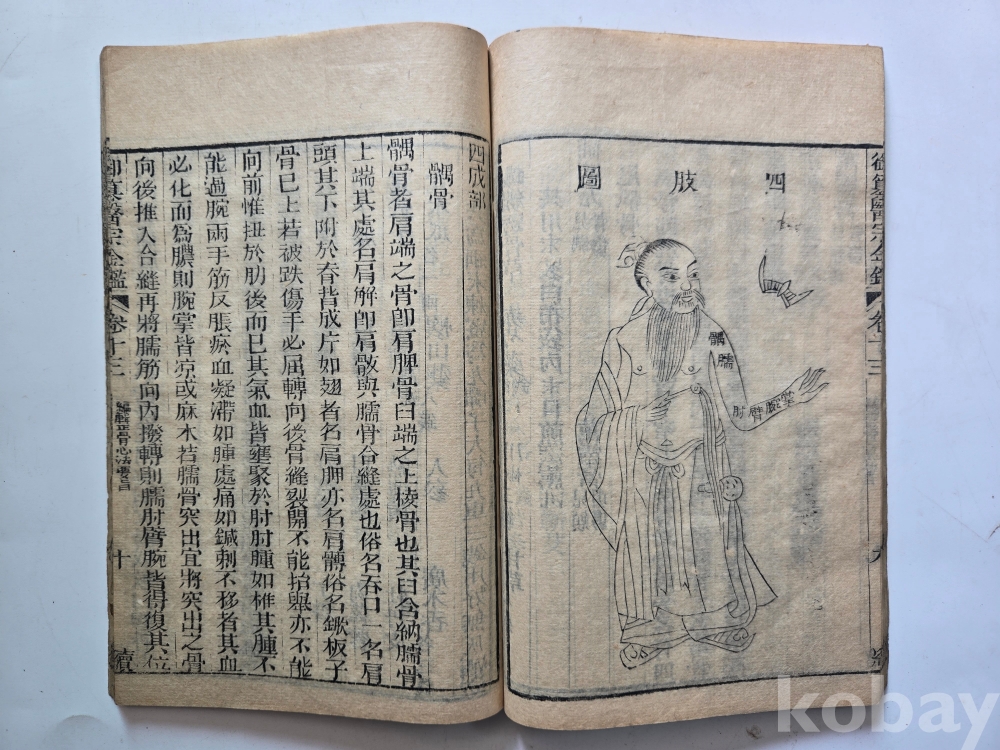 四肢圖
髃
臑
肘臂腕掌
九
四肢部
髃骨
髃骨者肩端之骨卽肩胛骨臼端之上棱骨也其臼含納臑骨
上端其處名肩解卽肩骸與臑骨合縫處也俗名吞口一名肩
頭其下附於脊背成片如翅者名肩胛亦名肩髆俗名鍁板子
骨已上若被跌傷手必屈轉向後骨縫裂開不能抬舉亦不能
向前惟扭於肋後而已其氣血皆壅聚於肘肘腫如椎其腫不
能過腕兩手筋反脹瘀血凝滯如腫處痛如鍼刺不移者其血
必化而為膿則腕掌皆凉或麻木若臑骨突出宜將突出之骨
向後推入合縫再將臑筋向內撥轉則臑肘臂腕皆得復其位
御纂醫宗金鑑
卷十三
編輯正骨心法要旨
十
續
kobay